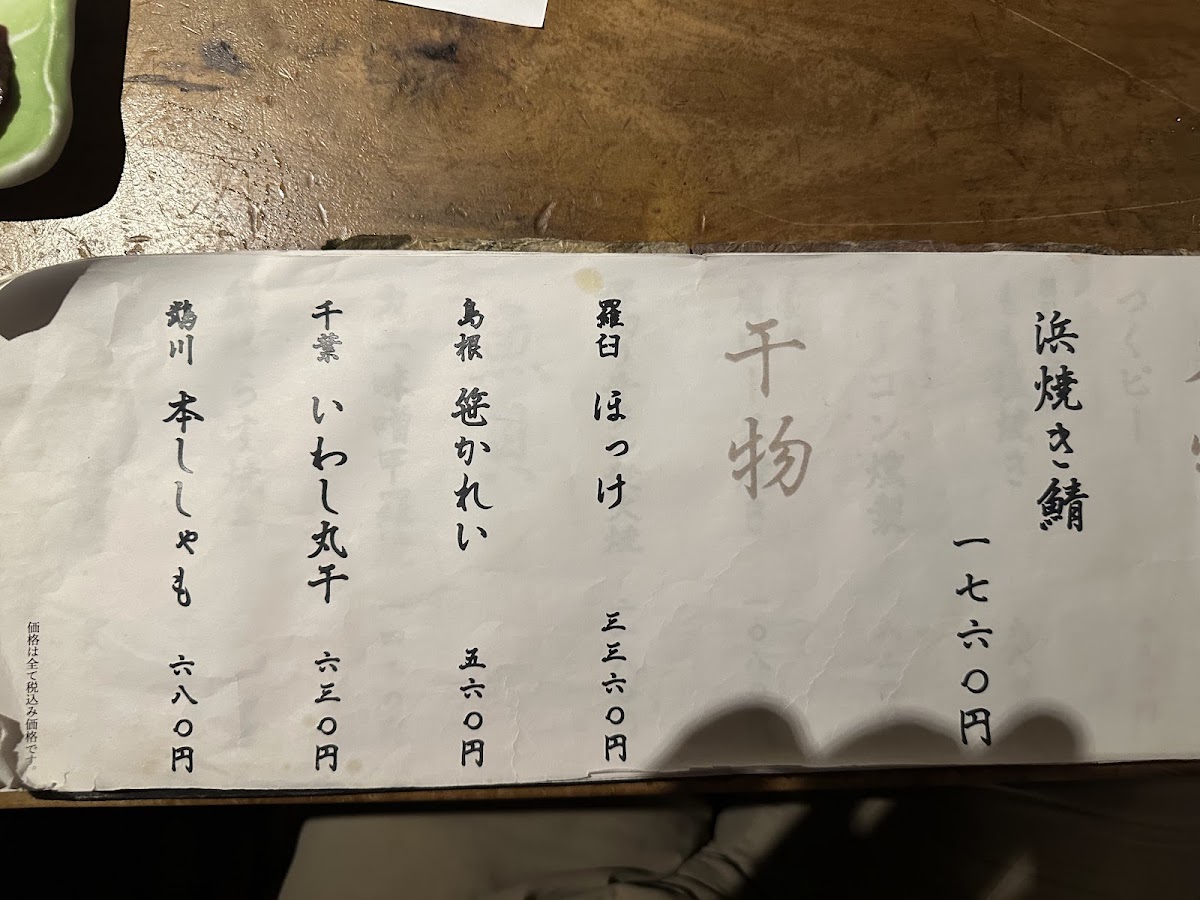 浜焼き鯖
一七六〇円
干物
羅臼 ほっけ 三三六〇円
島根 笹かれい 五六〇円
千葉 いわし丸干 六三〇円
鵡川 本ししゃも 六八〇円
価格は全て税込み価格です。